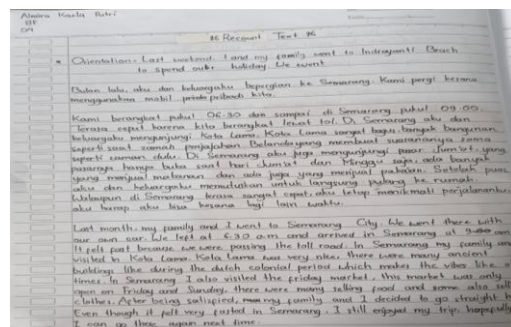 Almira Kaela Putri
8F
04
Recount Text
* Orientation: Last weekend, I and my family went to Indrayanti Beach
to spend our holiday. We went
Bulan lalu, aku dan keluargaku bepergian ke Semarang. Kami pergi kesana
menggunakan mobil pribadi kita.
Kami berangkat pukul 06.30 dan sampai di Semarang pukul 09.00.
Terasa cepat karena kita berangkat lewat tol. Di Semarang aku dan
keluargaku mengunjungi Kota Lama. Kota Lama sangat bagus, banyak bangunan
seperti saat zaman penjajahan Belanda yang membuat suasananya sama
seperti zaman dulu. Di Semarang aku juga mengunjungi pasar Jum'at, yang
pasarnya hanya buka saat hari Jum'at dan Minggu saja, ada banyak
yang menjual makanan dan ada juga yang menjual pakaian. Setelah puas
aku dan keluargaku memutuskan untuk langsung pulang ke rumah.
Walaupun di Semarang terasa sangat cepat, aku tetap menikmati perjalananku,
aku harap aku bisa kesana lagi lain waktu.
Last month, my family and I went to Semarang City. We went there with
our own car. We left at 6:30 a.m and arrived in Semarang at 9 a.m
It felt past because we were passing the toll road. In Semarang my family and
visited in Kota Lama. Kota Lama was very nice, there were many ancient
buildings like during the dutch colonial period which makes the vibes like a
times. In Semarang I also visited the friday market, this market was only
open on Friday and Sunday, there were many selling food and some also sell
clothes. After being satispied, my family and I decided to go straight h
Even though it felt very fasted in Semarang, I still enjoyed my trip, hopefully
I can go there again next time.